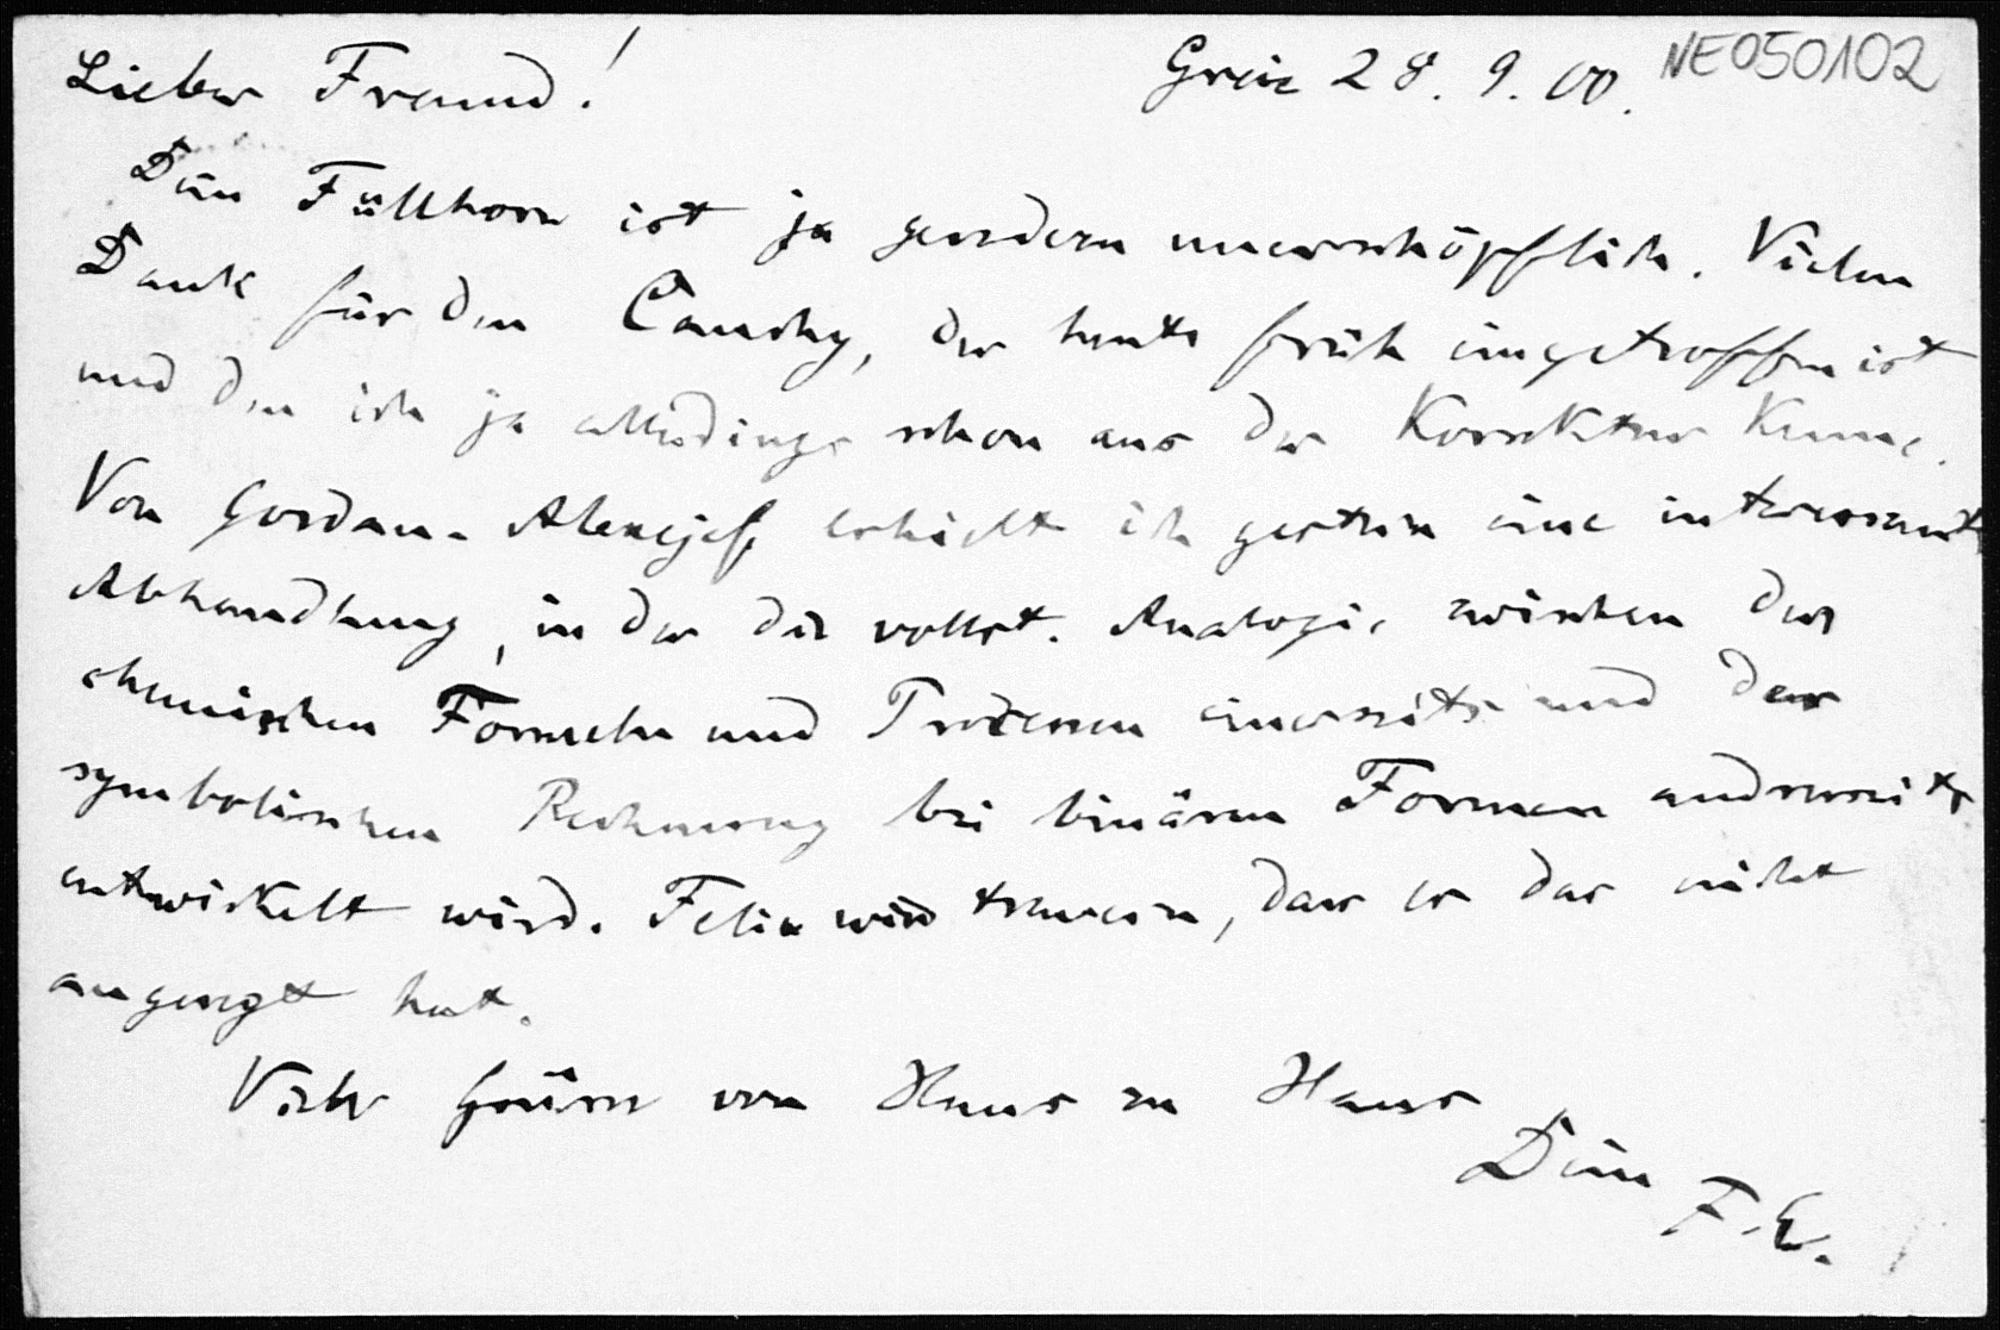 Lieber Freund! Greiz 28. 9. 00. NE050102
Dein Füllhorn ist ja geradezu unerschöpflich. Vielen
Dank für den Cauchy, der heute früh eingetroffen ist
und den ich ja allerdings schon aus der Korrektur kenne.
Von Gordan-Alexejeff erhielt ich gestern eine interessante
Abhandlung, in der die vollst. Analogie zwischen den
chemischen Formeln und Processen einerseits und der
symbolischen Rechnung bei binären Formen andrerseits
entwickelt wird. Felix wird trauern, dass er das nicht
angeregt hat.
Viele Grüsse von Haus zu Haus
Dein
F. E.